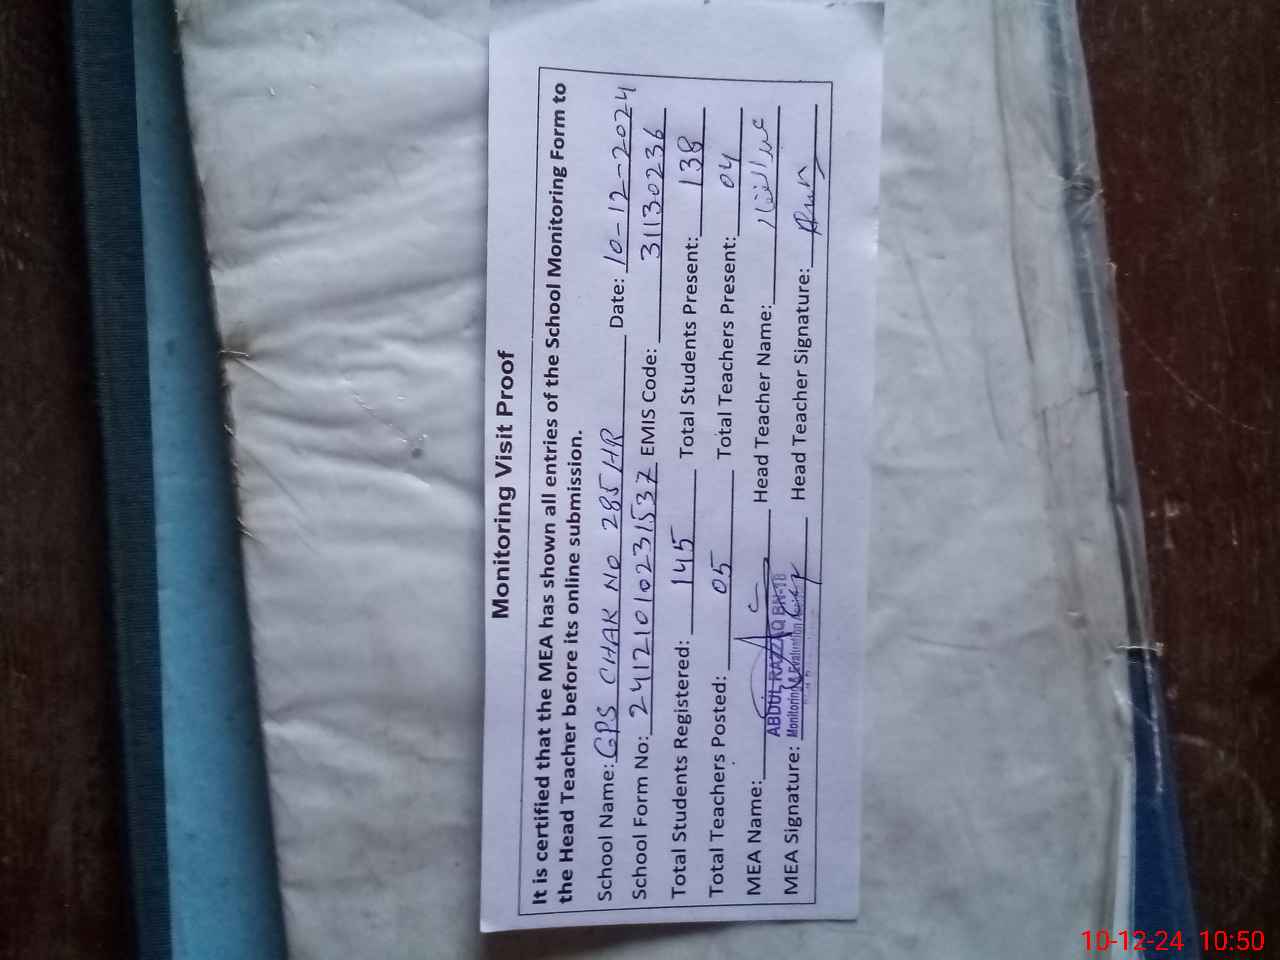 Monitoring Visit Proof
It is certified that the MEA has shown all entries of the School Monitoring Form to
the Head Teacher before its online submission.
School Name: GPS CHAK NO 285 HR Date: 10-12-2024
School Form No: 24121010231537 EMIS Code: 31130236
Total Students Registered: 145 Total Students Present: 138
Total Teachers Posted: 05 Total Teachers Present: 04
MEA Name: Head Teacher Name: عبدالغفار
ABDUL RAZZAQ BN-18
Monitoring & Evaluation
MEA Signature: Head Teacher Signature:
10-12-24 10:50